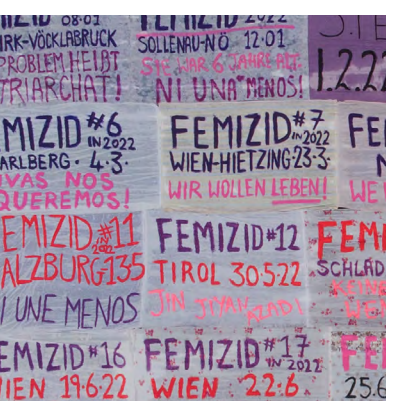 08·01
IRK-VÖCKLABRUCK
PROBLEM HEIßT
TRIARCHAT!
FEMIZID 2022
SOLLENAU-NÖ 12·01
SIE WAR 6 JAHRE ALT.
NI UNA MENOS!
1.2.22
MIZID #6
IN 2022
ARLBERG · 4·3·
VAS NOS
QUEREMOS!
FEMIZID #7
IN 2022
WIEN-HIETZING·23·3·
WIR WOLLEN LEBEN!
FE
WE
EMIZID #11
IN 2022
ALZBURG-135
I UNE MENOS
FEMIZID #12
TIROL 30·5·22
JIN JIYAN AZADI
FEM
SCHLAD
EMIZID #16
IEN 19·6·22
FEMIZID #17
IN 2022
WIEN 22·6·
FE
25.6